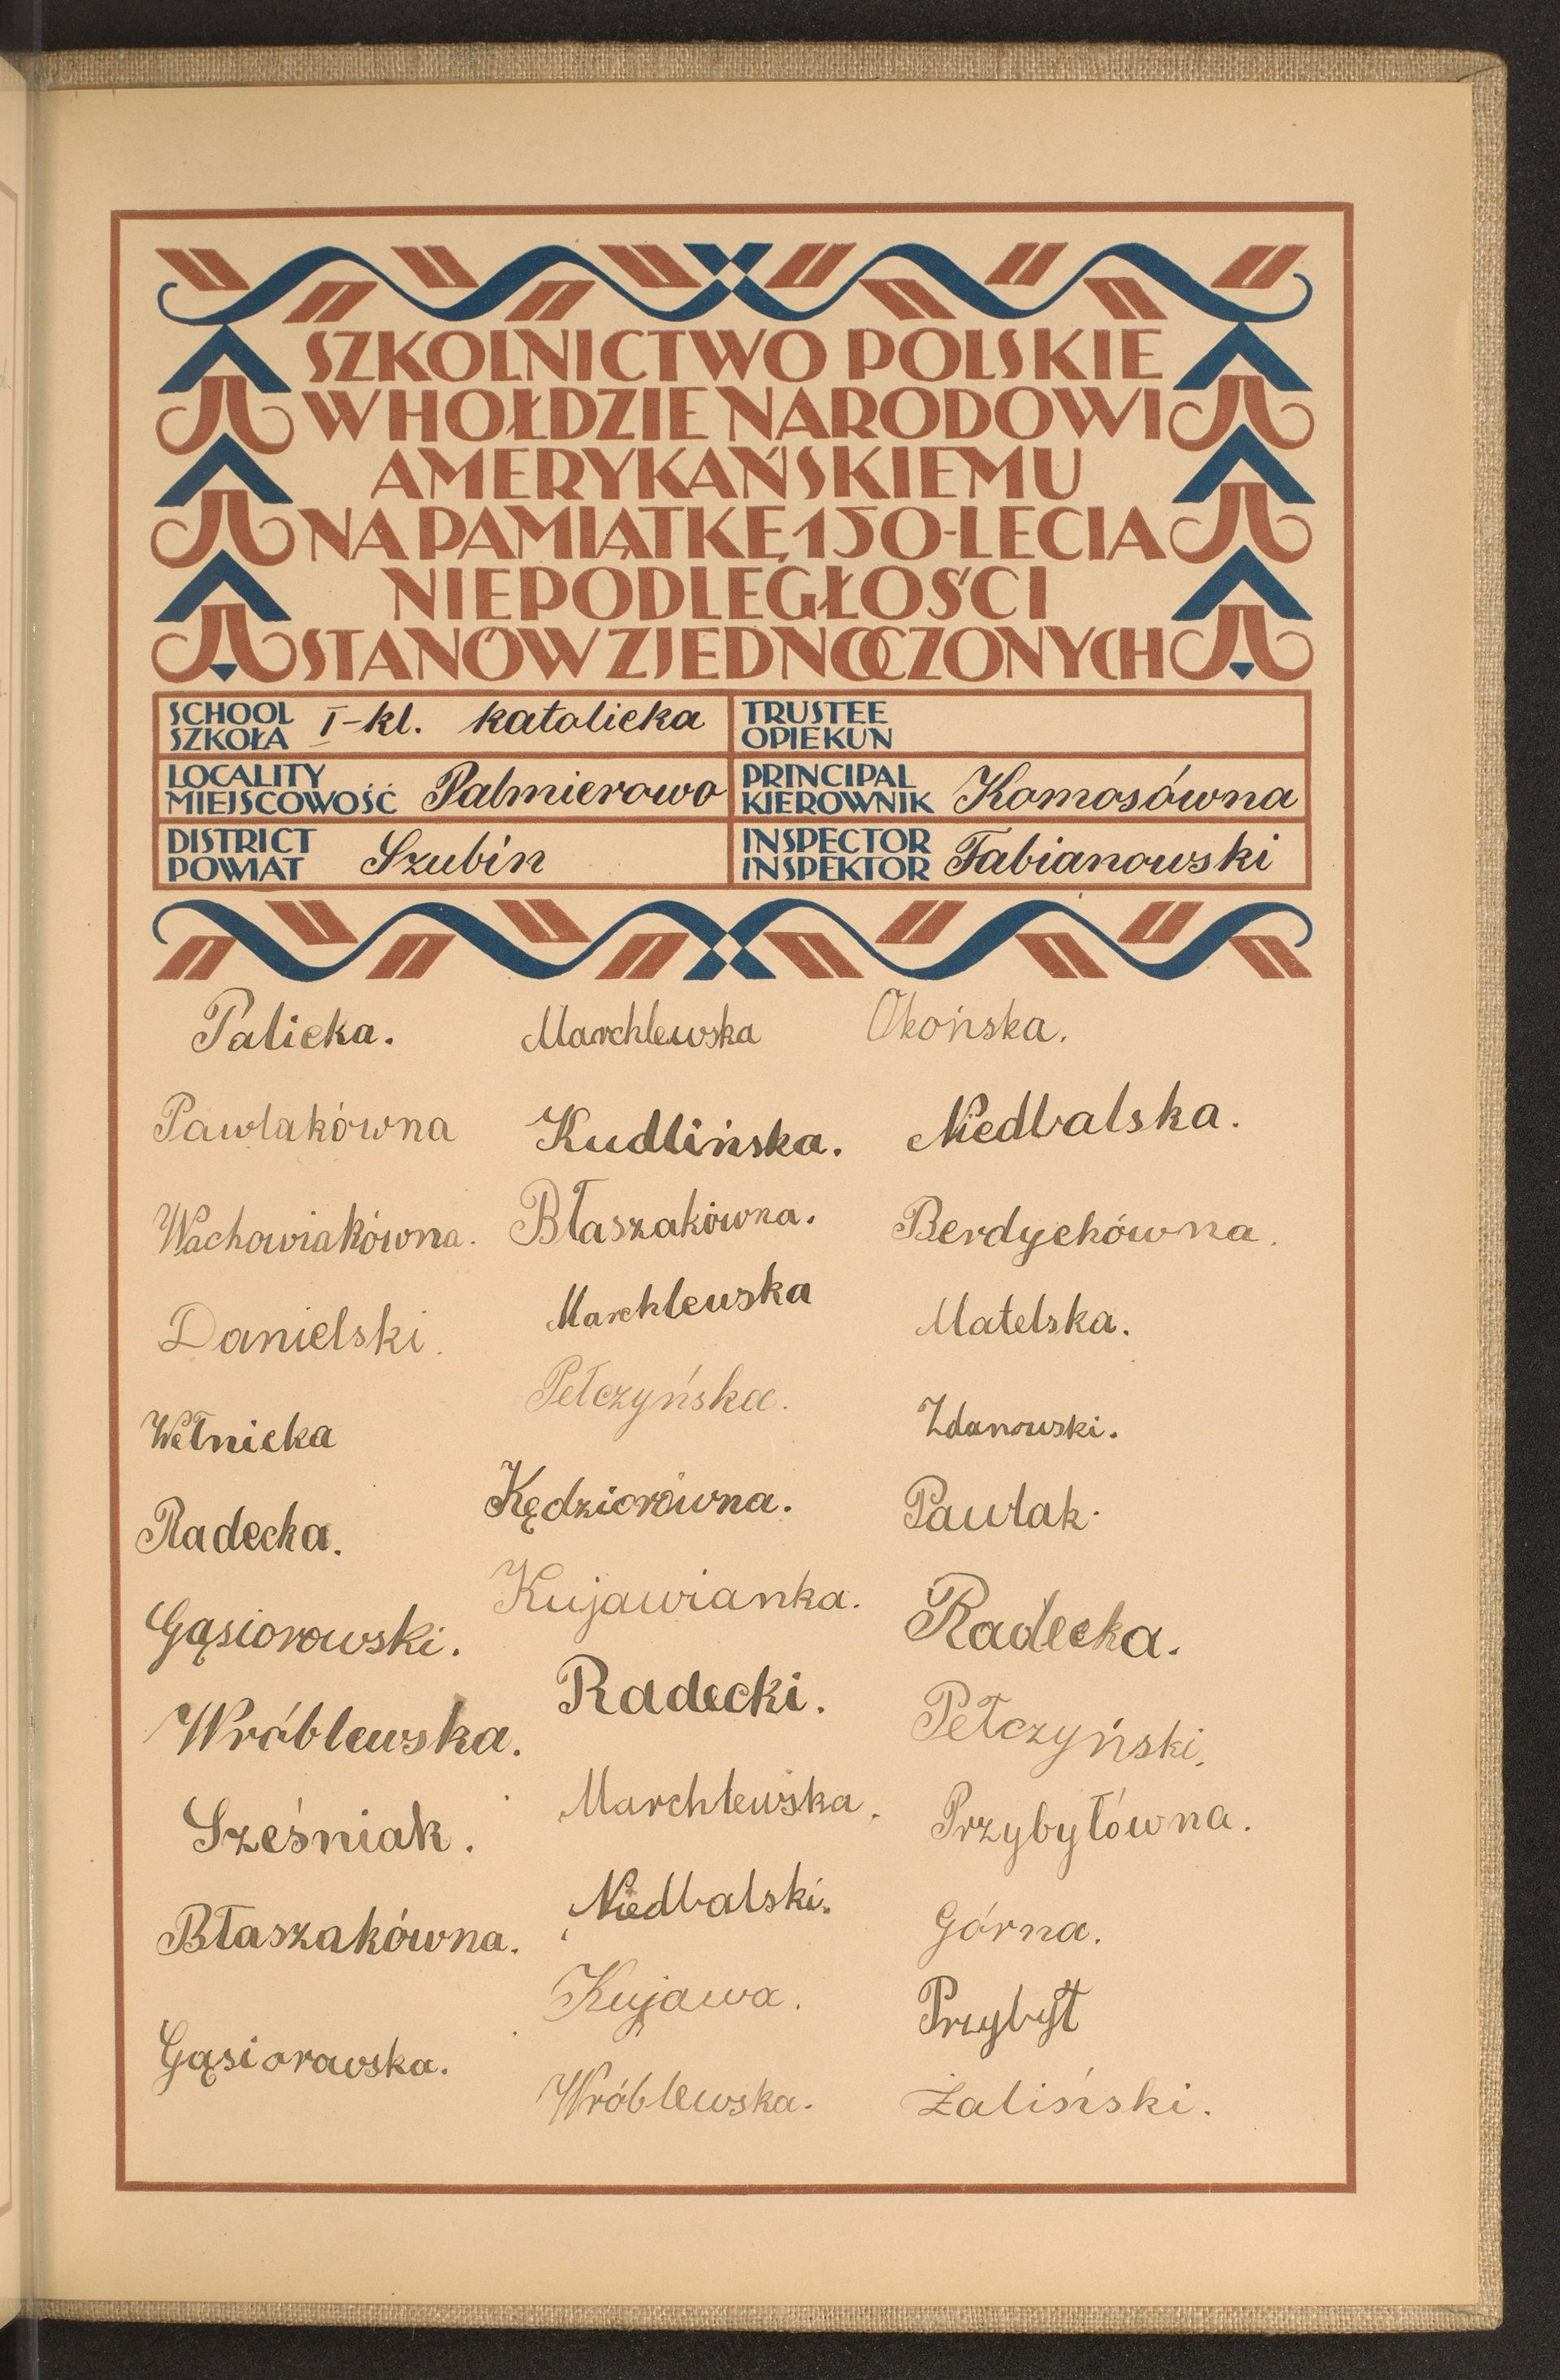 SZKOLNICTWO POLSKIE
W HOŁDZIE NARODOWI
AMERYKAŃSKIEMU
NA PAMIĄTKĘ 150-LECIA
NIEPODLEGŁOŚCI
STANÓW ZJEDNOCZONYCH
SCHOOL
SZKOŁA I-kl. katolicka
TRUSTEE
OPIEKUN
LOCALITY
MIEJSCOWOŚĆ Palmierowo
PRINCIPAL
KIEROWNIK Komosówna
DISTRICT
POWIAT Szubin
INSPECTOR
INSPEKTOR Fabianowski
Palicka.
Pawlakówna
Wachowiakówna.
Danielski.
Wełnicka
Radecka.
Gąsiorowski.
Wróblewska.
Sześniak.
Błaszakówna.
Gąsiorowska.
Marchlewska
Kudlińska.
Błaszakówna.
Marchlewska
Pełczyńska.
Kędziorówna.
Kujawianka.
Radecki.
Marchlewska.
Niedbalski.
Kujawa.
Wróblewska.
Okońska.
Niedbalska.
Berdychówna.
Matelska.
Zdanowski.
Pawlak.
Radecka.
Pełczyński.
Przybyłówna.
Górna.
Przybył
Żaliński.